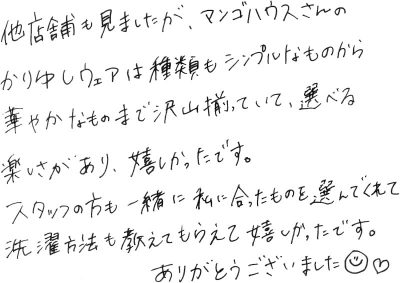 他店舗も見ましたが、マンゴハウスさんの
かりゆしウェアは種類もシンプルなものから
華やかなものまで沢山揃っていて、選べる
楽しさがあり、嬉しかったです。
スタッフの方も一緒に私に合ったものを選んでくれて
洗濯方法も教えてもらえて嬉しかったです。
ありがとうございました☺♡